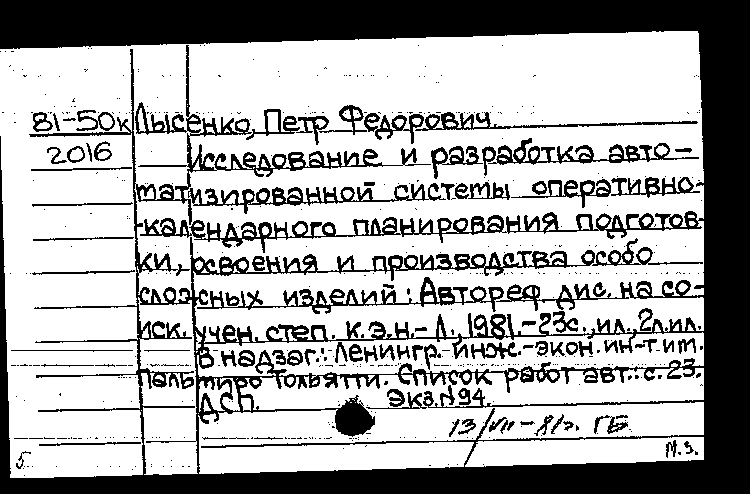 81-50к Лысенко, Петр Федорович.
2016 Исследование и разработка авто-
матизированной системы оперативно-
-календарного планирования подготов-
ки, освоения и производства особо
сложных изделий: Автореф. дис. на со-
иск. учен. степ. к.э.н.- Л., 1981.-23с., ил., 2л.ил.
В надзаг.: Ленингр. инж.-экон. ин-т им.
Пальмиро Тольятти. Список работ авт.: с. 23.
ДСП. Экз. №94.
13/VII-81г. ГБ
5 М.З.